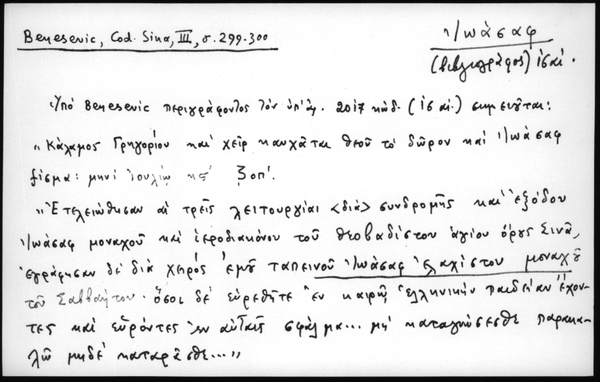 Benesevic, Cod. Sina, III, σ. 299-300
Ἰωάσαφ
(βιβλιογράφος) ις αἰ.
Ὑπό Benesevic περιγράφοντος τὸν ὑπ' ἀρ. 2017 κώδ. (ις αἰ.) σημειοῦται:
« Κάλαμος Γρηγορίου καὶ χείρ καυχᾶται θεοῦ τὸ δῶρον καὶ Ἰωάσαφ
μηνί ἰουλίῳ κς'
« Ἐτελειώθησαν αἱ τρεῖς λειτουργίαι <διὰ> συνδρομῆς καὶ ἐξόδου
Ἰωάσαφ μοναχοῦ καὶ ἱεροδιακόνου τοῦ θεοβαδίστου ἁγίου ὄρους Σινᾶ,
ἐγράφησαν δὲ διὰ χειρός ἐμοῦ ταπεινοῦ Ἰωάσαφ ἐλαχίστου μοναχοῦ
τοῦ Σαββαΐτου. ὅσοι δὲ εὑρεθῆτε ἐν καιρῷ ἑλληνικήν παιδείαν ἔχον-
τες καὶ εὑρόντες ἐν αὐταῖς σφάλμα... μή καταγνώσεσθε παρακα-
λῶ μηδέ καταρᾶσθε...»